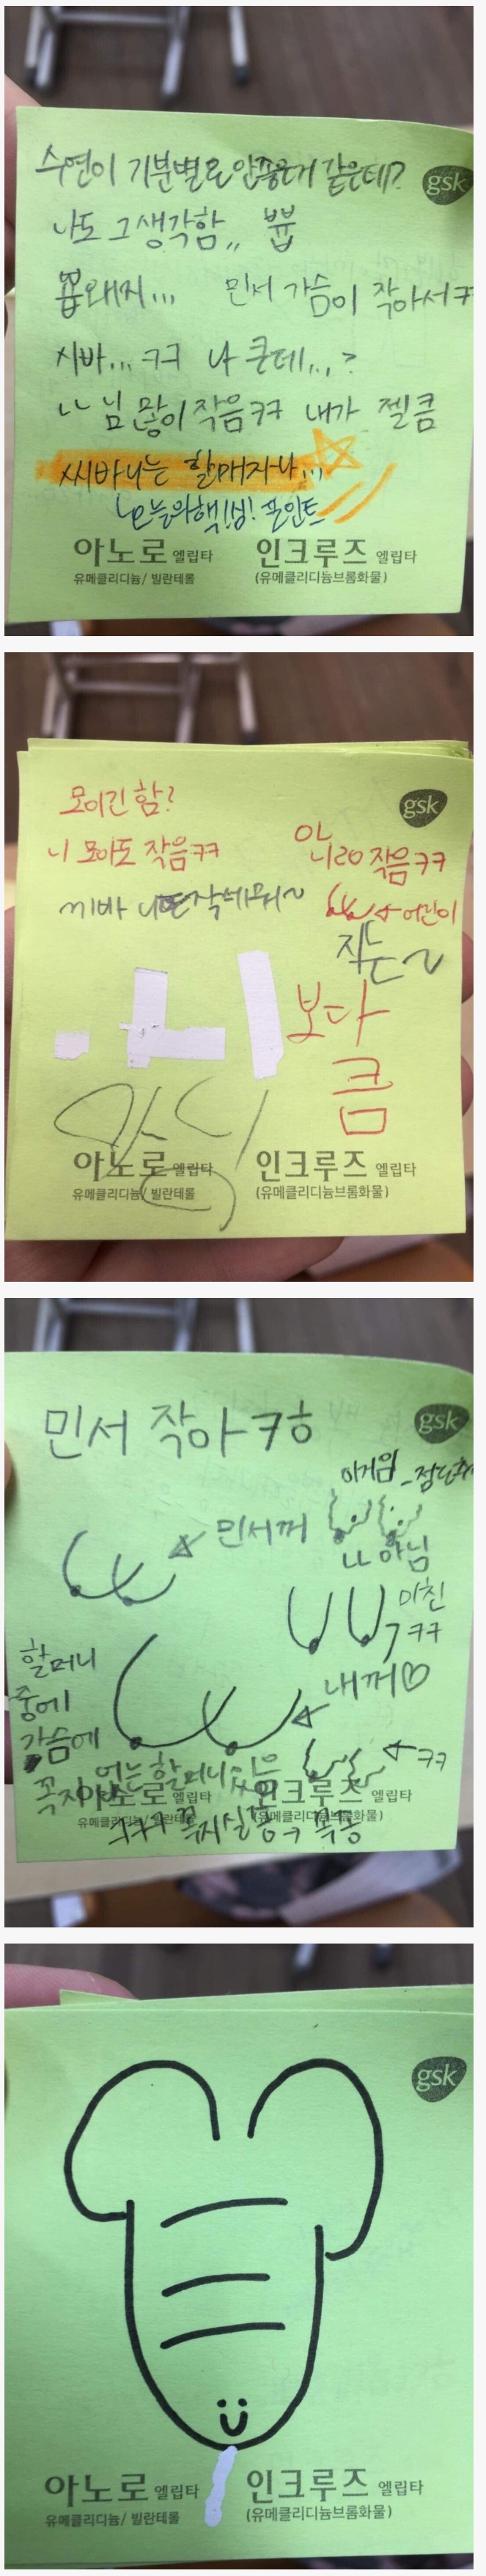 수연이 기분별로안좋은거 같은데?
gsk
나도 그생각함,, 쁍
쫍왜지... 민서 가슴이 작아서ㅋ
시바...ㅋㅋ 나 큰데...?
ㄴㄴ 님 많이작음ㅋㅋ 내가 젤큼
씨바 너는 할매자나...
오늘의핵!심! 포인트
아노로 엘립타
유메클리디늄/ 빌란테롤
인크루즈 엘립타
(유메클리디늄브롬화물)
gsk
모이긴함?
니 모아도 작음ㅋㅋ
작음ㅋㅋ
어린이
작는~
보다
큼
아노로 엘립타
유메클리디늄/ 빌란테롤
인크루즈 엘립타
(유메클리디늄브롬화물)
민서 작아ㅋㅎ
gsk
민서꺼
ㄴㄴ 아님
미친
ㅋㅋ
내꺼♡
할머니
중에
가슴에
어느할머니
ㅋㅋ
아노로 엘립타
유메클리디늄/ 빌란테롤
인크루즈 엘립타
(유메클리디늄브롬화물)
gsk
아노로 엘립타
유메클리디늄/ 빌란테롤
인크루즈 엘립타
(유메클리디늄브롬화물)